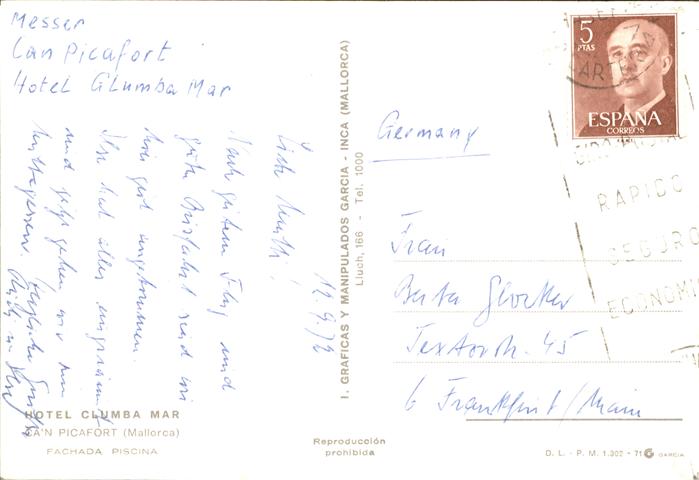 Messer
Can Picafort
Hotel Glumba Mar
12.9.72
Liebe Mutti!
Nach gutem Flug und
gute Busfahrt sind wir
hier gut angekommen.
Ilse hat alles eingeräumt
und jetzt gehen wir zum
Mittagessen. Herzliche Grüße
HOTEL CLUMBA MAR
CA'N PICAFORT (Mallorca)
FACHADA PISCINA
I. GRAFICAS Y MANIPULADOS GARCIA - INCA (MALLORCA)
Lluch, 166 - Tel. 1000
Reproducción
prohibida
5
PTAS
ESPAÑA
CORREOS
RAPIDO
SEGURO
ECONOMI
Germany
Frau
Berta Glocker
Textorstr. 45
6 Frankfurt/Main
D. L. - P. M. 1.302 - 71
GARCIA